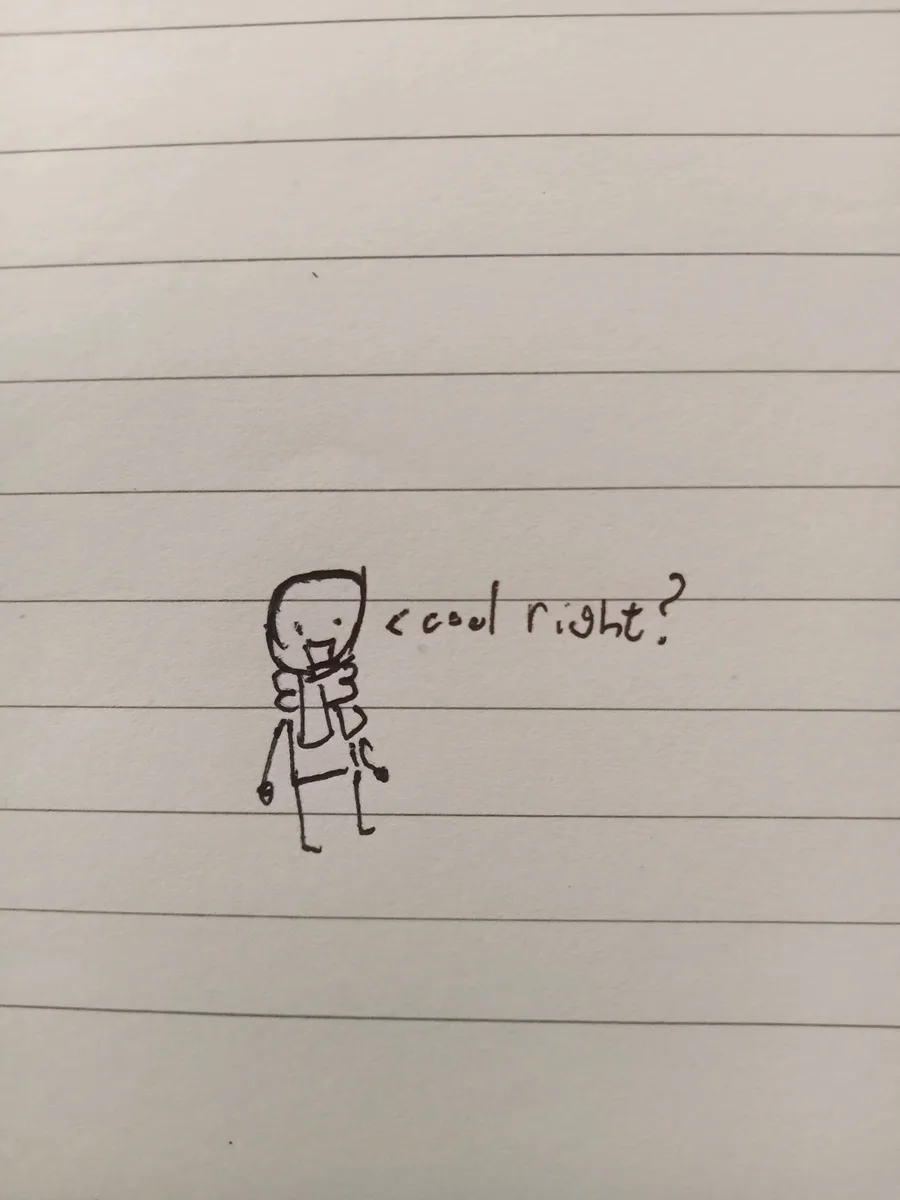 < cool right?